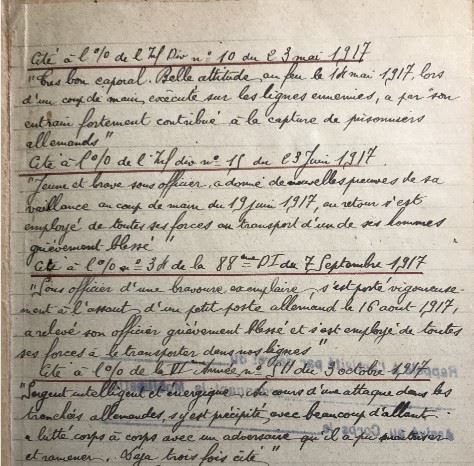 Cité à l'O/o de l'Inf Div n° 10 du 23 mai 1917
"Très bon caporal. Belle attitude au feu le 18 mai 1917, lors
d'un coup de main, exécuté sur les lignes ennemies, a par son
entrain fortement contribué à la capture de prisonniers
allemands"
Cité à l'O/o de l'Inf div n° 15 du 23 Juin 1917.
"Jeune et brave sous officier, a donné de nouvelles preuves de sa
vaillance au coup de main du 19 juin 1917, au retour s'est
employé de toutes ses forces au transport d'un de ses hommes
grièvement blessé"
Cité à l'O/o n° 34 de la 88eme DI du 7 Septembre 1917
"Sous officier d'une bravoure exemplaire, s'est porté vigoureuse-
ment à l'assaut d'un petit poste allemand le 16 août 1917,
a relevé son officier grièvement blessé et s'est employé de toutes
ses forces à le transporter dans nos lignes"
Cité à l'O/o de la VIe Armée n° 511 du 3 octobre 1917
"Sergent intelligent et énergique. Au cours d'une attaque dans les
tranchées allemandes, s'y est précipité, avec beaucoup d'allant
a lutté corps à corps avec un adversaire qu'il a pu maîtriser
et ramener. Déjà trois fois cité"